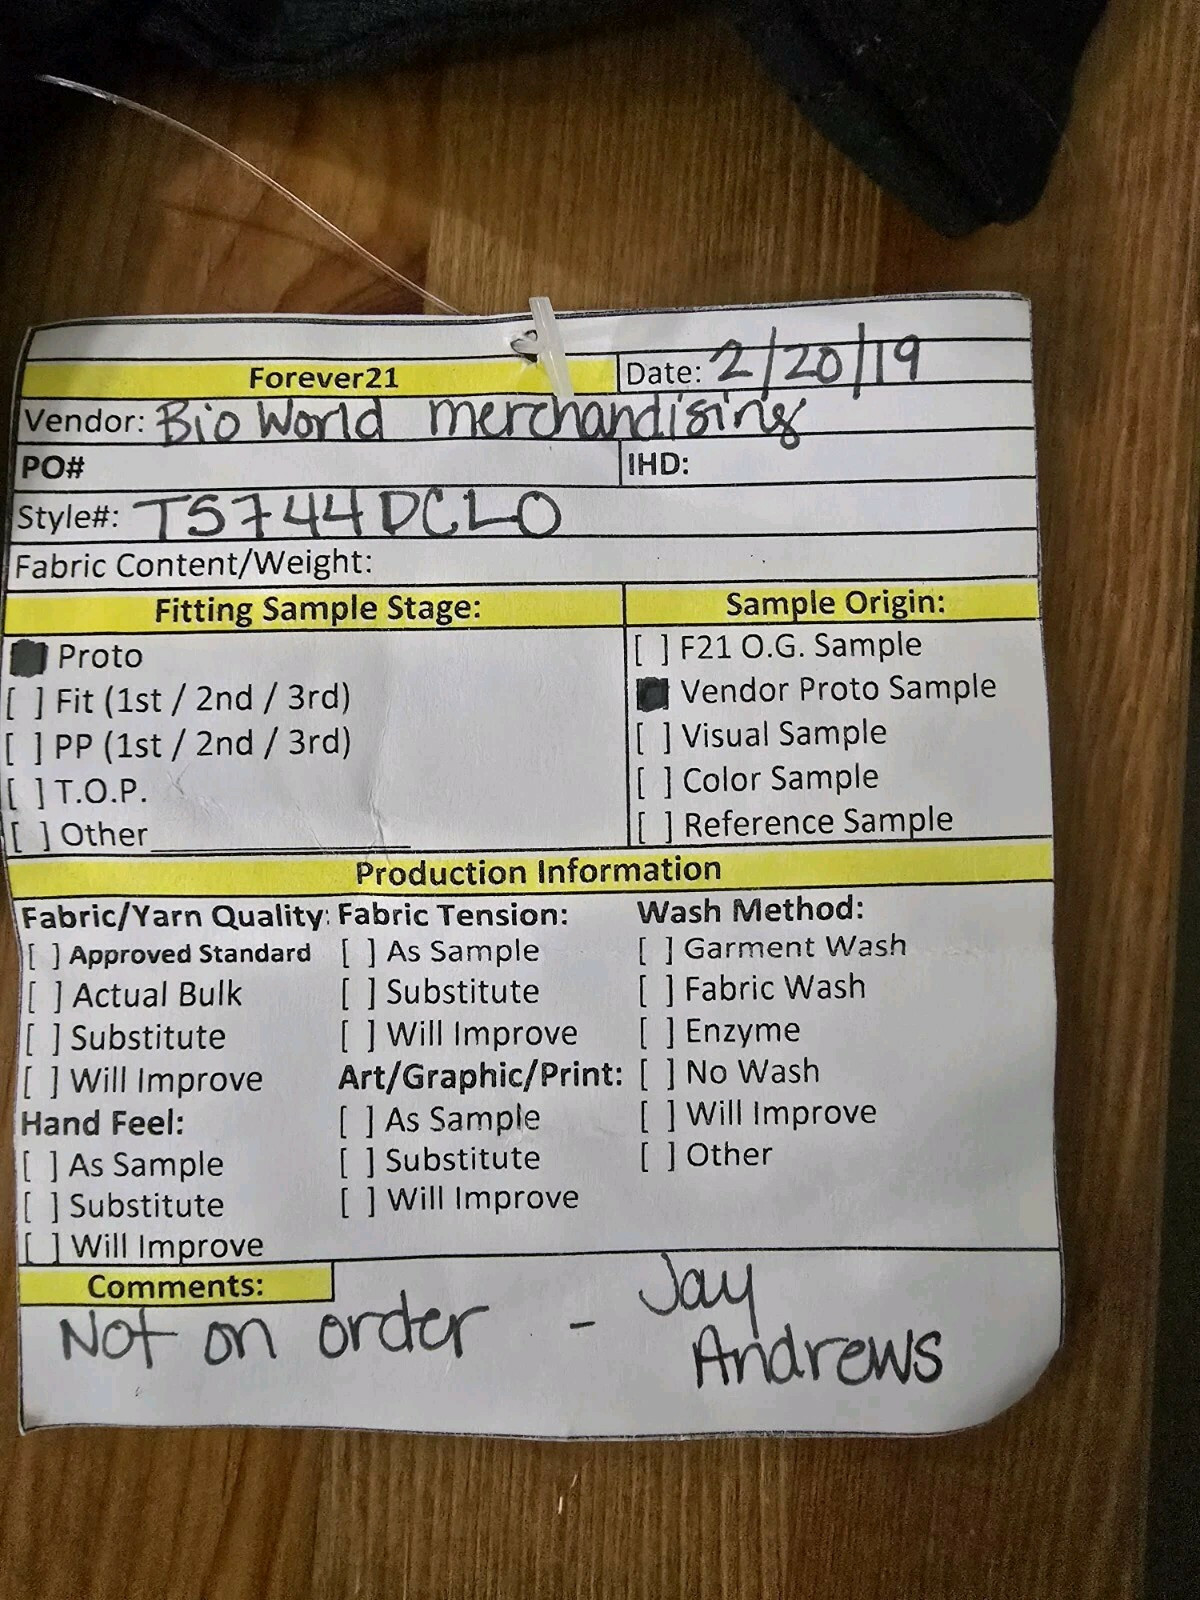 Forever21 Date: 2/20/19
Vendor: Bio World merchandising
PO# IHD:
Style#: TS744DCLO
Fabric Content/Weight:
Fitting Sample Stage: Sample Origin:
Proto [ ] F21 O.G. Sample
[ ] Fit (1st / 2nd / 3rd) Vendor Proto Sample
[ ] PP (1st / 2nd / 3rd) [ ] Visual Sample
[ ] T.O.P. [ ] Color Sample
[ ] Other [ ] Reference Sample
Production Information
Fabric/Yarn Quality: Fabric Tension: Wash Method:
[ ] Approved Standard [ ] As Sample [ ] Garment Wash
[ ] Actual Bulk [ ] Substitute [ ] Fabric Wash
[ ] Substitute [ ] Will Improve [ ] Enzyme
[ ] Will Improve Art/Graphic/Print: [ ] No Wash
Hand Feel: [ ] As Sample [ ] Will Improve
[ ] As Sample [ ] Substitute [ ] Other
[ ] Substitute [ ] Will Improve
[ ] Will Improve
Comments:
Not on order - Jay
Andrews